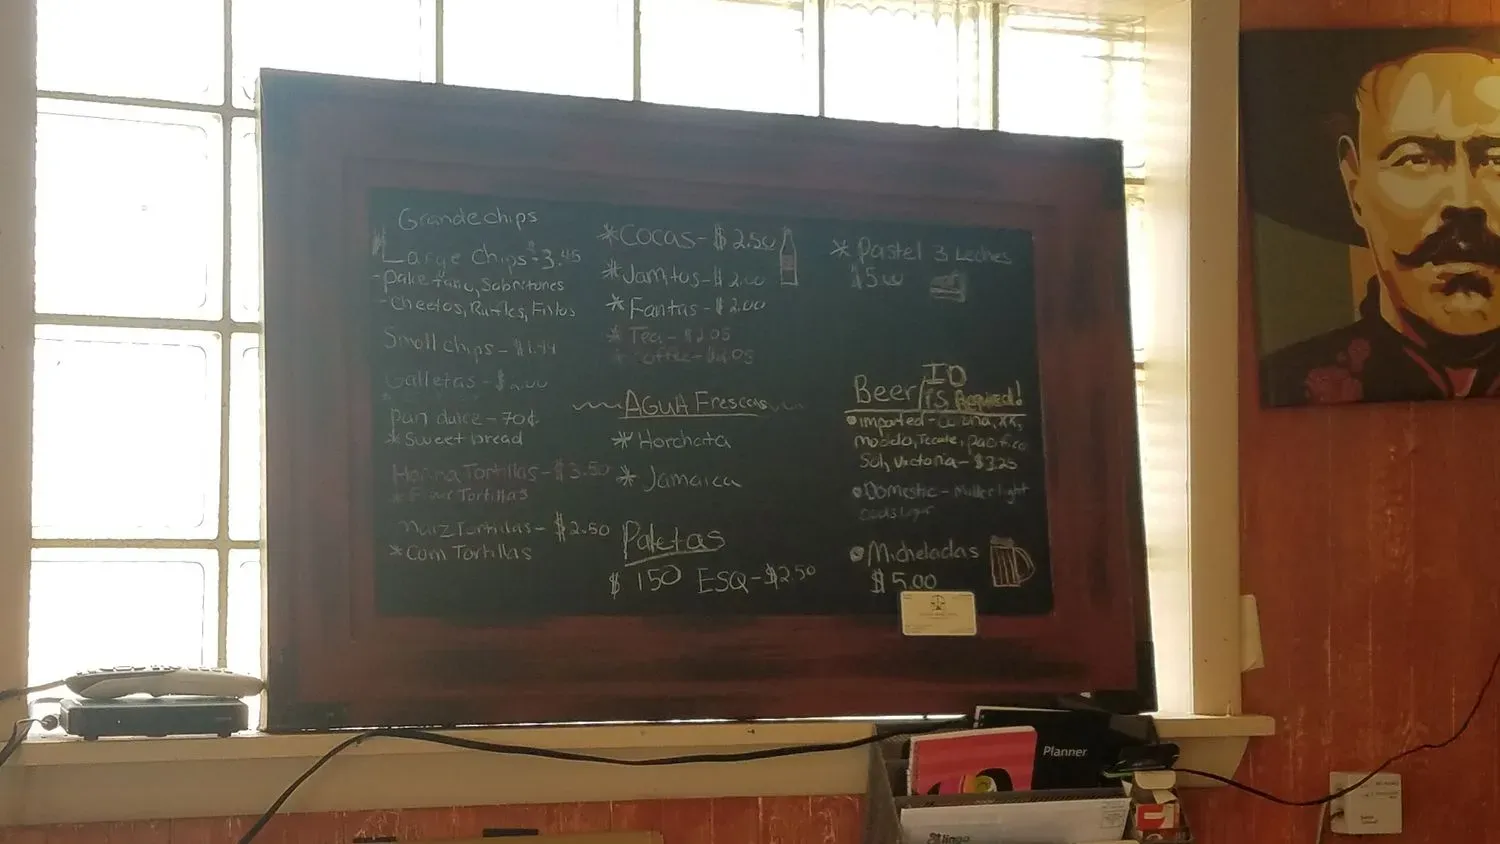 Grande chips
Large Chips - 3.45
- Cheetos, Ruffles,
Small chips - $1.44
Galletas - $2.00
Pan dulce - 70¢
* Sweet bread
Harina Tortillas - $3.50
* Flour Tortillas
Maiz Tortillas - $2.50
* Corn Tortillas
* Cocas - $2.50
* Jarritos - $2.00
* Fantas - $2.00
* Tea - $2.05
* Coffee - $2.05
AGUA Frescas
* Horchata
* Jamaica
Paletas
$ 150 ESQ - $2.50
* Pastel 3 Leches
$5.00
Beer / ID
is Required!
• Imported - Corona, XX,
Modelo, Tecate, pacifico
Sol, Victoria - $3.25
• Domestic - Miller light
coors light
• Micheladas
$5.00
Planner